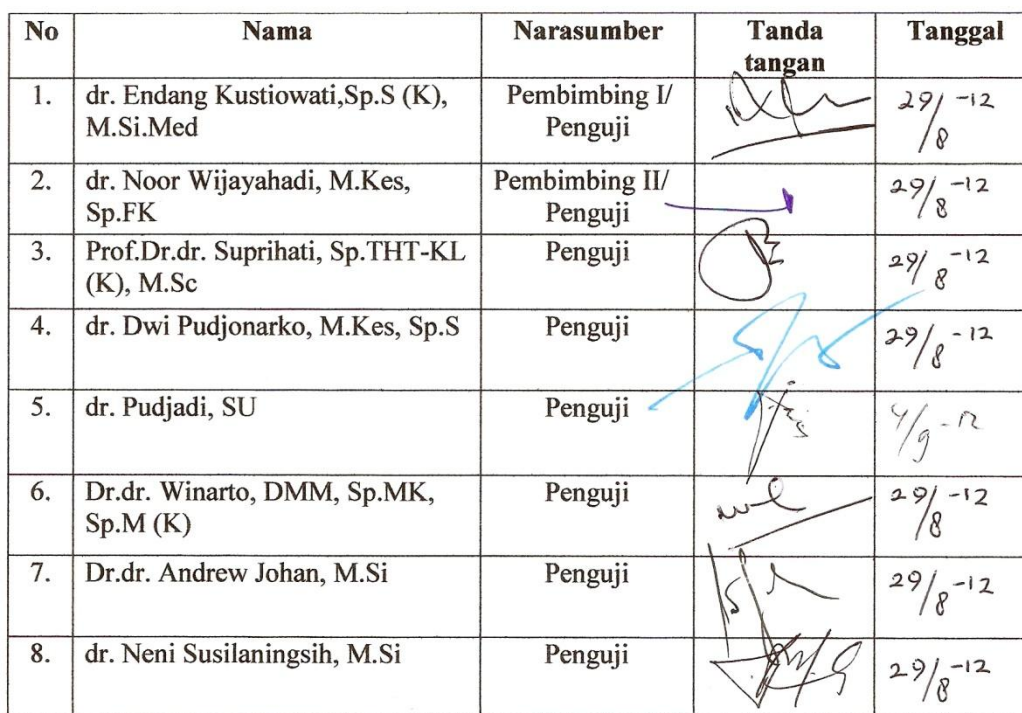 No Nama Narasumber Tanda Tanggal
tangan
1. dr. Endang Kustiowati,Sp.S (K), Pembimbing I/ 29/8 -12
M.Si.Med Penguji
2. dr. Noor Wijayahadi, M.Kes, Pembimbing II/ 29/8 -12
Sp.FK Penguji
3. Prof.Dr.dr. Suprihati, Sp.THT-KL Penguji 29/8 -12
(K), M.Sc
4. dr. Dwi Pudjonarko, M.Kes, Sp.S Penguji 29/8 -12
5. dr. Pudjadi, SU Penguji 4/9 -12
6. Dr.dr. Winarto, DMM, Sp.MK, Penguji 29/8 -12
Sp.M (K)
7. Dr.dr. Andrew Johan, M.Si Penguji 29/8 -12
8. dr. Neni Susilaningsih, M.Si Penguji 29/8 -12